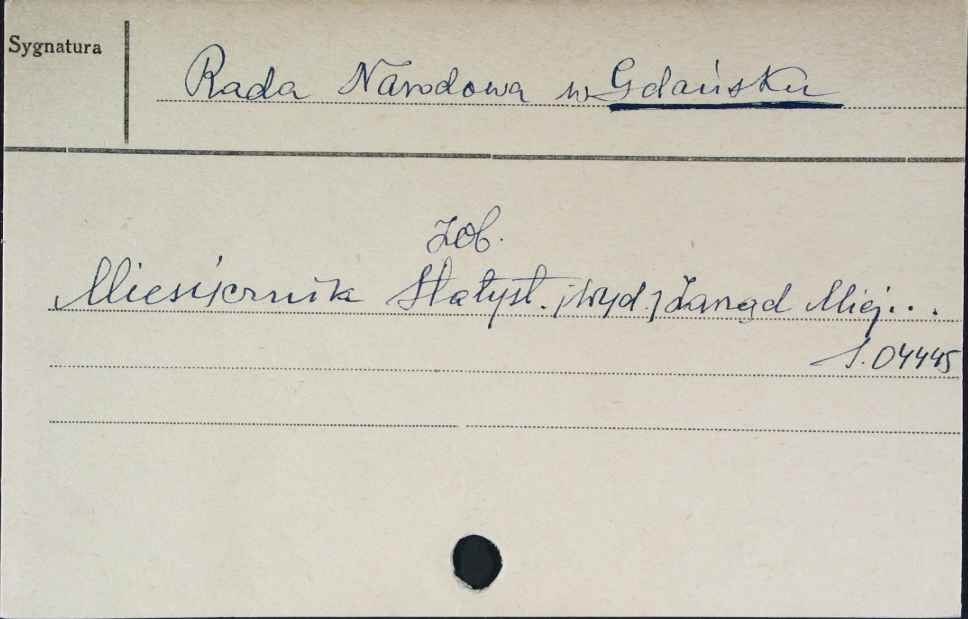 Sygnatura
Rada Narodowa w Gdańsku
Zob.
Miesięcznik Statyst. [Wyd.] Zarząd Miej...
S. 04445